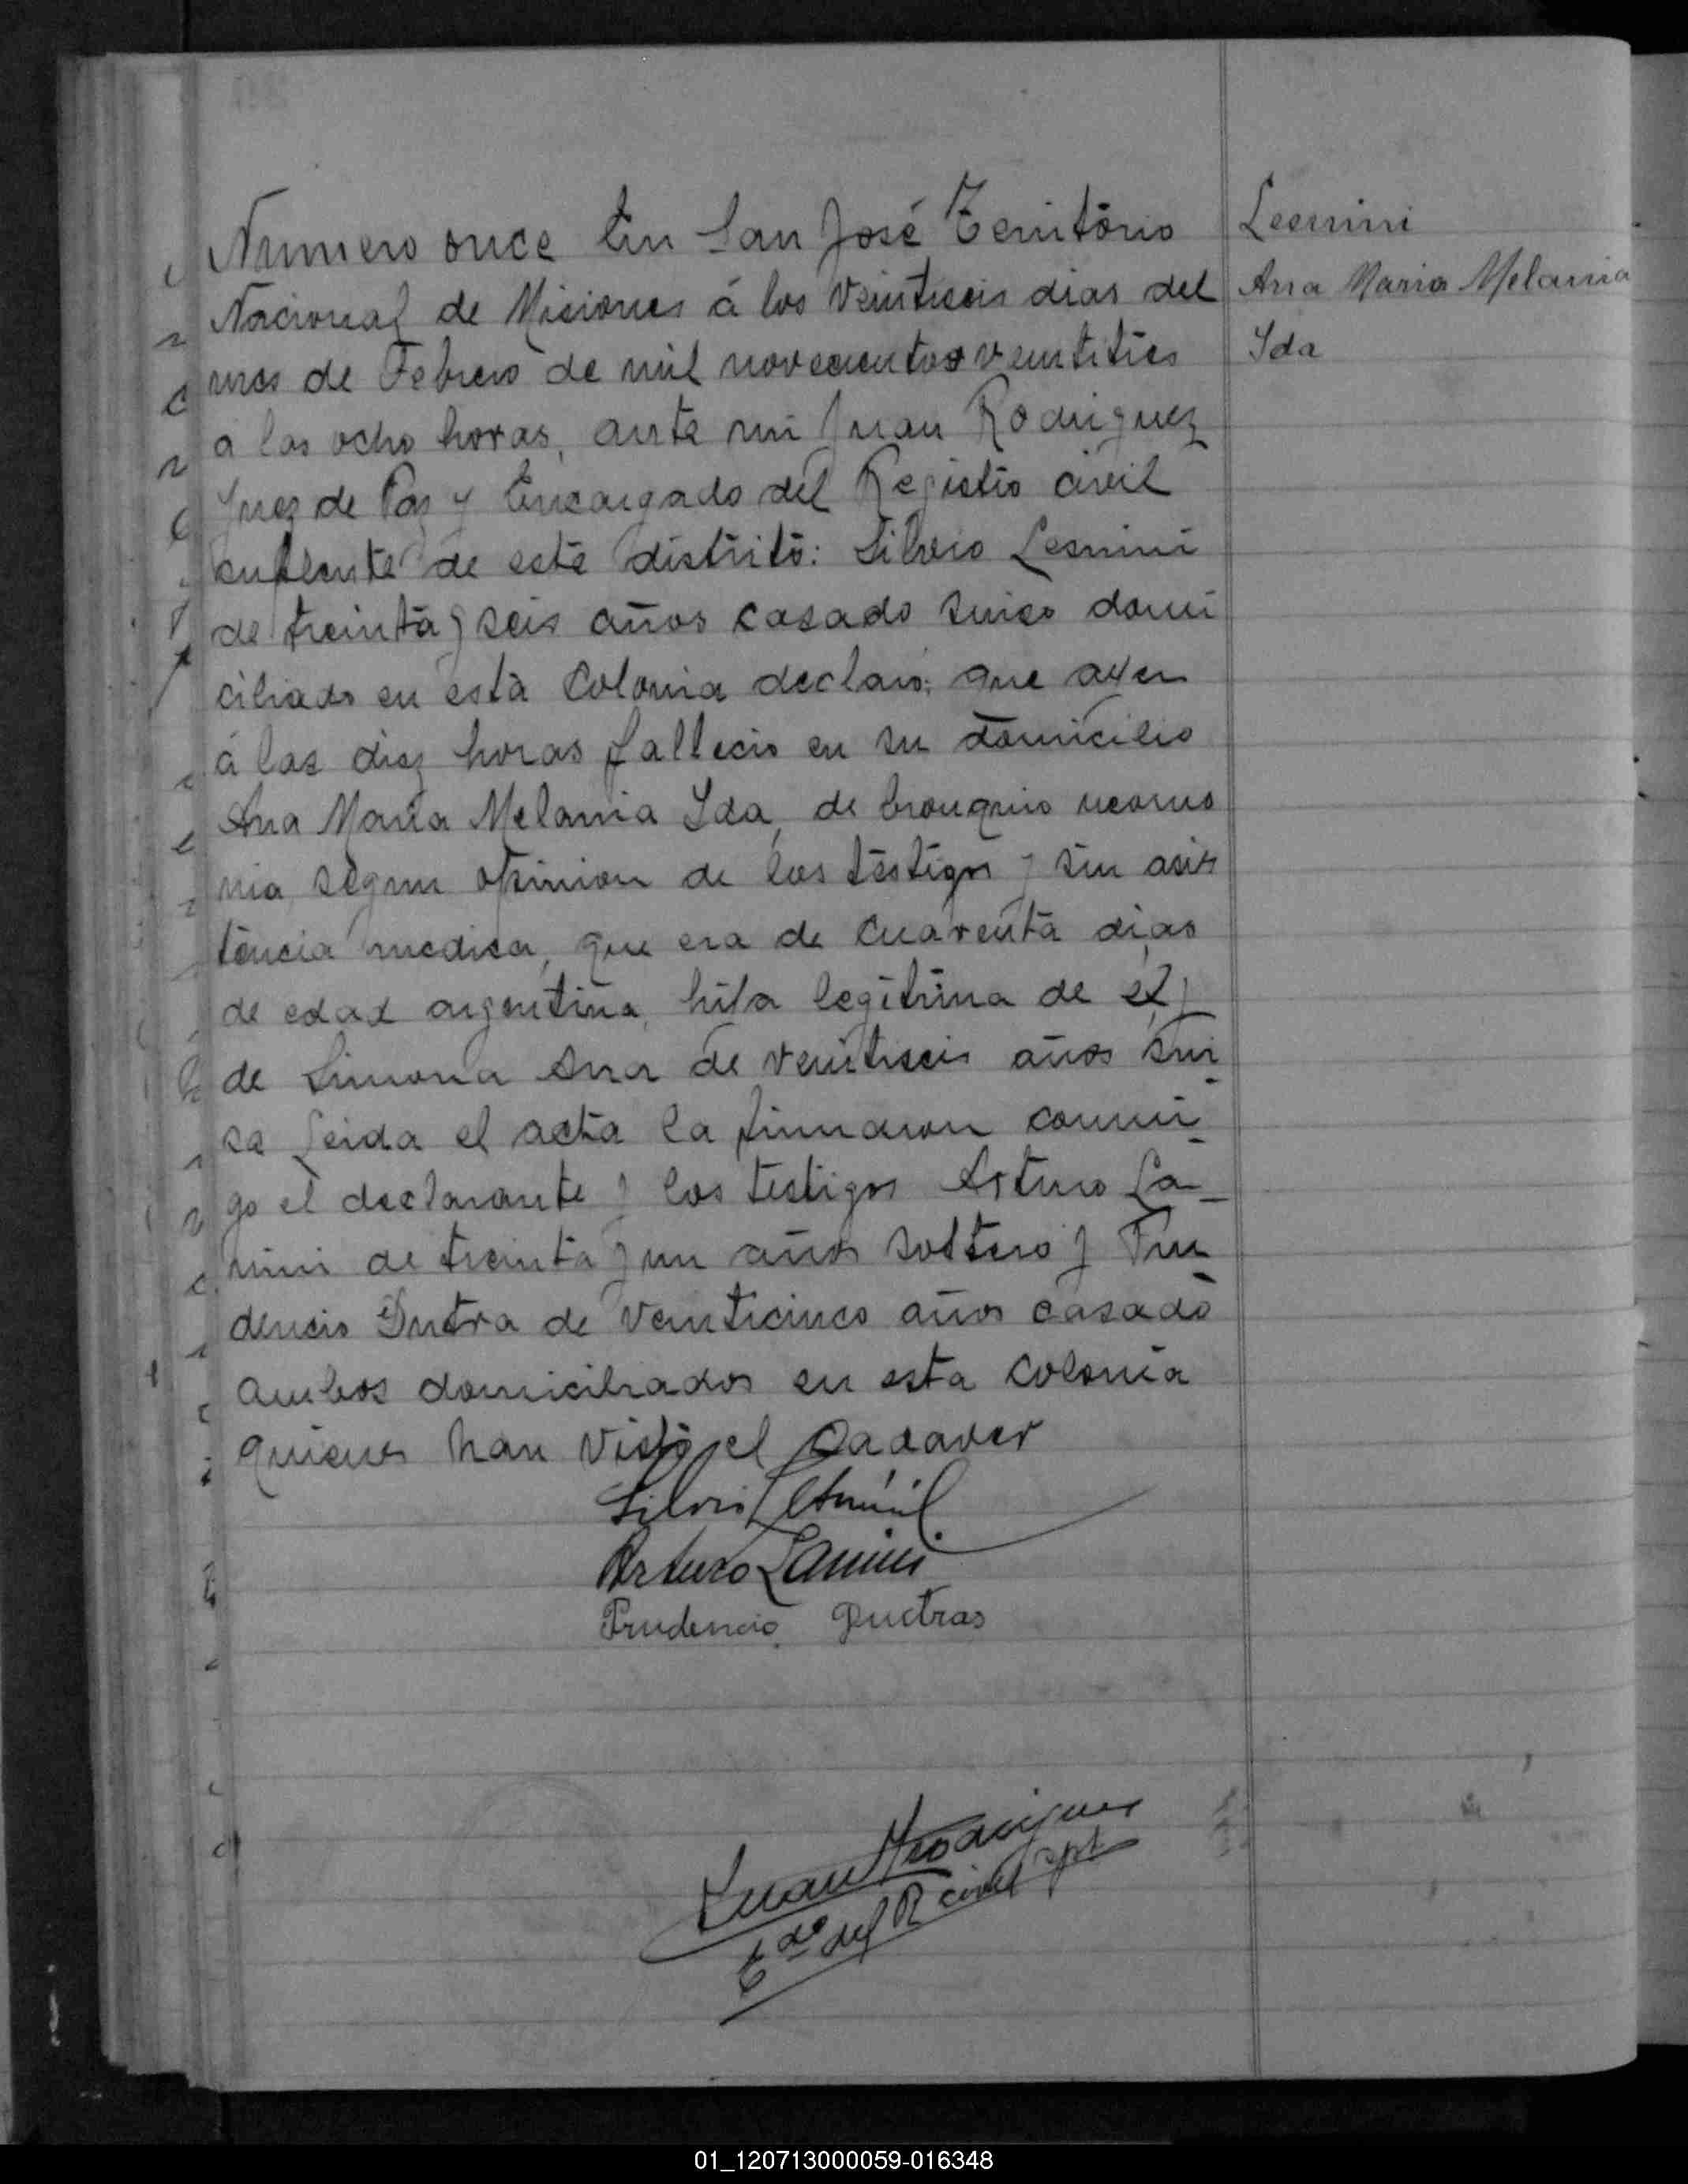 Numero once En San José Territorio
Nacional de Misiones á los veintiseis dias del
mes de Febrero de mil novecientos veintitres
a las ocho horas, ante mi Juan Rodriguez
Juez de Paz y Encargado del Registro civil
suplente de este distrito: Silvio Lesnini
de treinta y seis años casado suiso domi
ciliado en esta Colonia declaro: que ayer
á las diez horas fallecio en su domicilio
Ana Maria Melania Ida, de bronquio neomo
nia segun opinion de los testigos y sin asis
tencia medica, que era de cuarenta dias
de edad argentina, hija legitima de él y
de Simona Ana de veintiseis años sui
sa Leida el acta la firmaron conmi
go el declarante y los testigos Arturo La_
nini de treinta y un años soltero y Pru
dencio Dutra de veinticinco años casado
ambos domiciliados en esta colonia
quienes han visto el cadaver
Silvio
Arturo Lanini
Prudencio Ductras
Juan Rodriguez
Edo del R civil spt
Lesnini
Ana Maria Melania
Ida
01_120713000059-016348